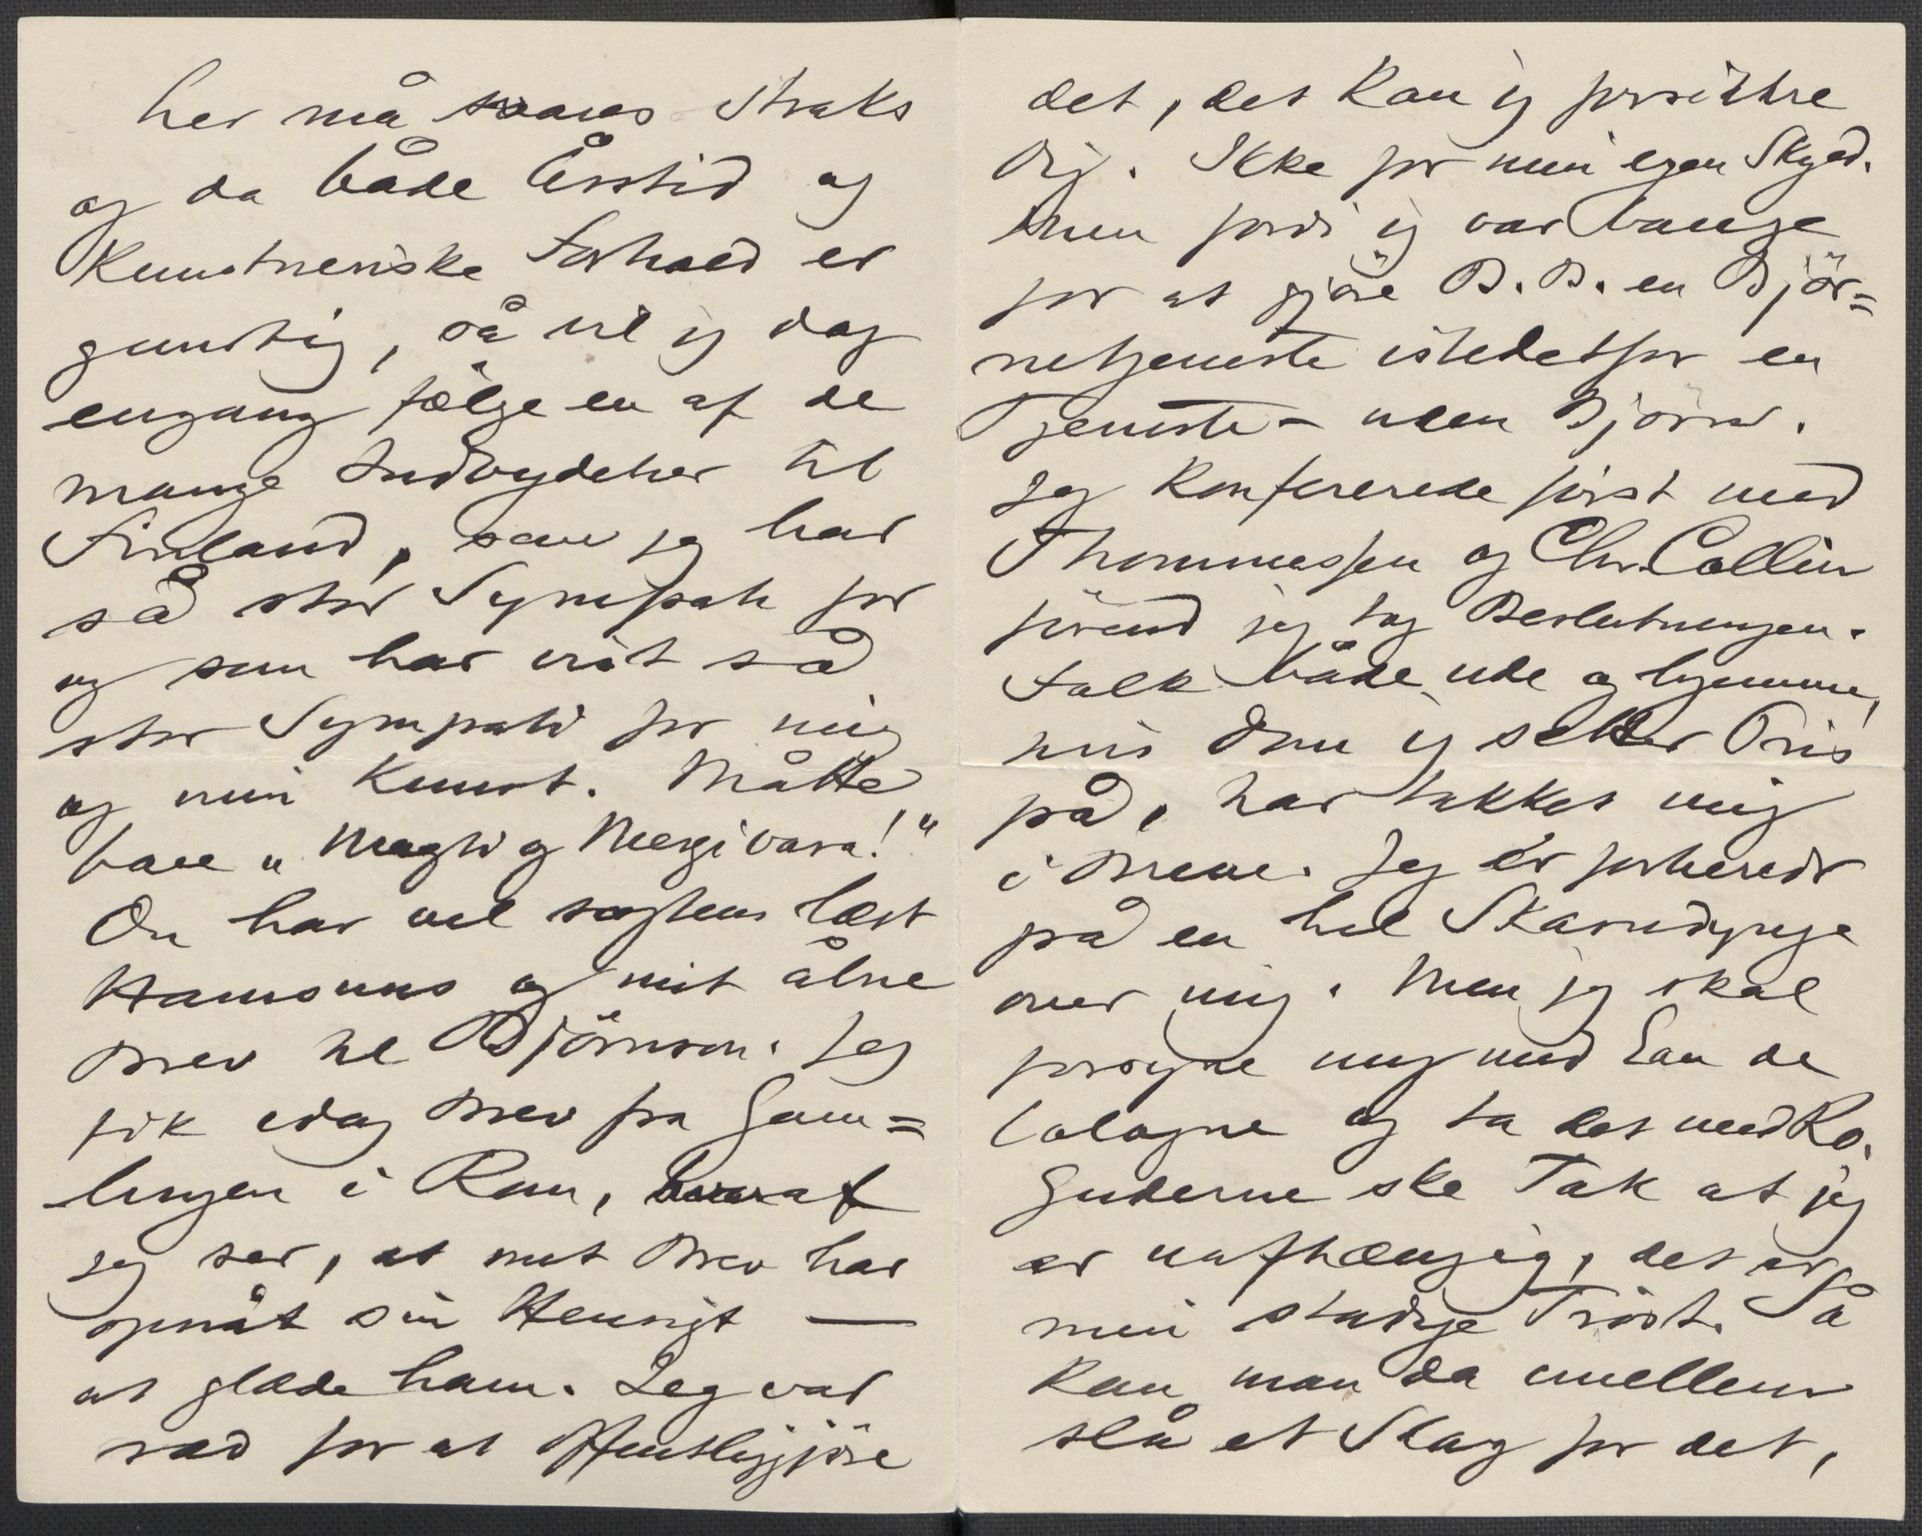 her må svares straks
og da både Årstid og
Kunstneriske Forhold er
gunstig, så vil jeg dog
engang følge en af de
mange Indbydelser til
Finland, som jeg har
så stor Sympati for
og som har vist så
stor Sympati for mig
og min Kunst. Måtte
bare „Magtig Mergivara!"
Du har vel sagtens læst
Hamsuns og mit åbne
Brev til Björnson. Jeg
fik idag Brev fra Gam=
lingen i Rom, hvoraf
jeg ser, at mit Brev har
opnåt sin Hensigt —
at glæde ham. Jeg var
ræd for at offentliggjöre
det, det kan jeg forsikkre
Dig. Ikke for min egen Skyld.
Men fordi jeg var bange
for at gjöre B. B. en Björ=
netjeneste istedetfor en
Tjeneste – uden Björn.
Jeg konfererede först med
Thommessen og Chr. Collin
förend jeg tog Beslutningen.
Folk både ude og hjemme,
hvis Dom jeg sætter Pris
på, har takket mig
i Breve. Jeg er forberedt
på en hel Skarndynge
over mig. Men jeg skal
forsyne mig med Eau de
Cologne og ta det med Ro.
Guderne ske Tak at jeg
er uafhængig, det er
min stadige Tröst. Så
kan man da imellem
slå et Slag for det,